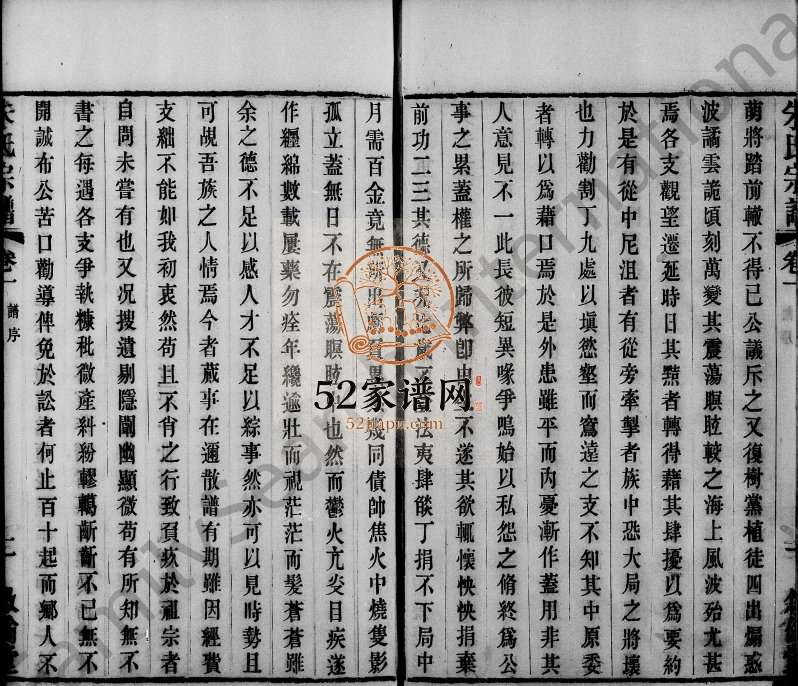 朱氏宗譜 卷一 譜序
萌將踏前轍不得已公議斥之又復樹黨植徒四出煽惑
波譎雲詭頃刻萬變其震蕩瞑眩較之海上風波殆尤甚
焉各支觀望遷延時日其黠者轉得藉其肆擾以爲要約
於是有從中尼沮者有從旁牽掣者族中恐大局之將壞
也力勸割丁九處以塡慾壑而寫遠之支不知其中原委
者轉以爲藉口焉於是外患雖平而內憂漸作蓋用非其
人意見不一此長彼短異喙爭鳴始以私怨之脩終爲公
事之累蓋權之所歸弊卽由不遂其欲輒懷怏怏捐棄
前功二三其德法夷肆餤丁捐不下局中
月需百金竟無同債帥焦火中燒隻影
孤立蓋無日不在震蕩瞑眩中也然而鬱火亢炎目疾遂
作纏綿數載屢藥勿痊年纔逾壯而視茫茫而髮蒼蒼雖
余之德不足以感人才不足以綜事然亦可以見時勢且
可覘吾族之人情焉今者蕆事在邇散譜有期雖因經費
支絀不能如我初衷然苟且不肖之行致頁疚於祖宗者
自問未嘗有也又况搜遺剔隱闡幽顯微苟有所知無不
書之每遇各支爭執糠秕微產糾紛轇轕齗齗不已無不
開誠布公苦口勸導俾免於訟者何止百十起而鄉人不
朱氏宗譜 卷一 譜序
52家谱网
52jiapu.com
FamilySearch International